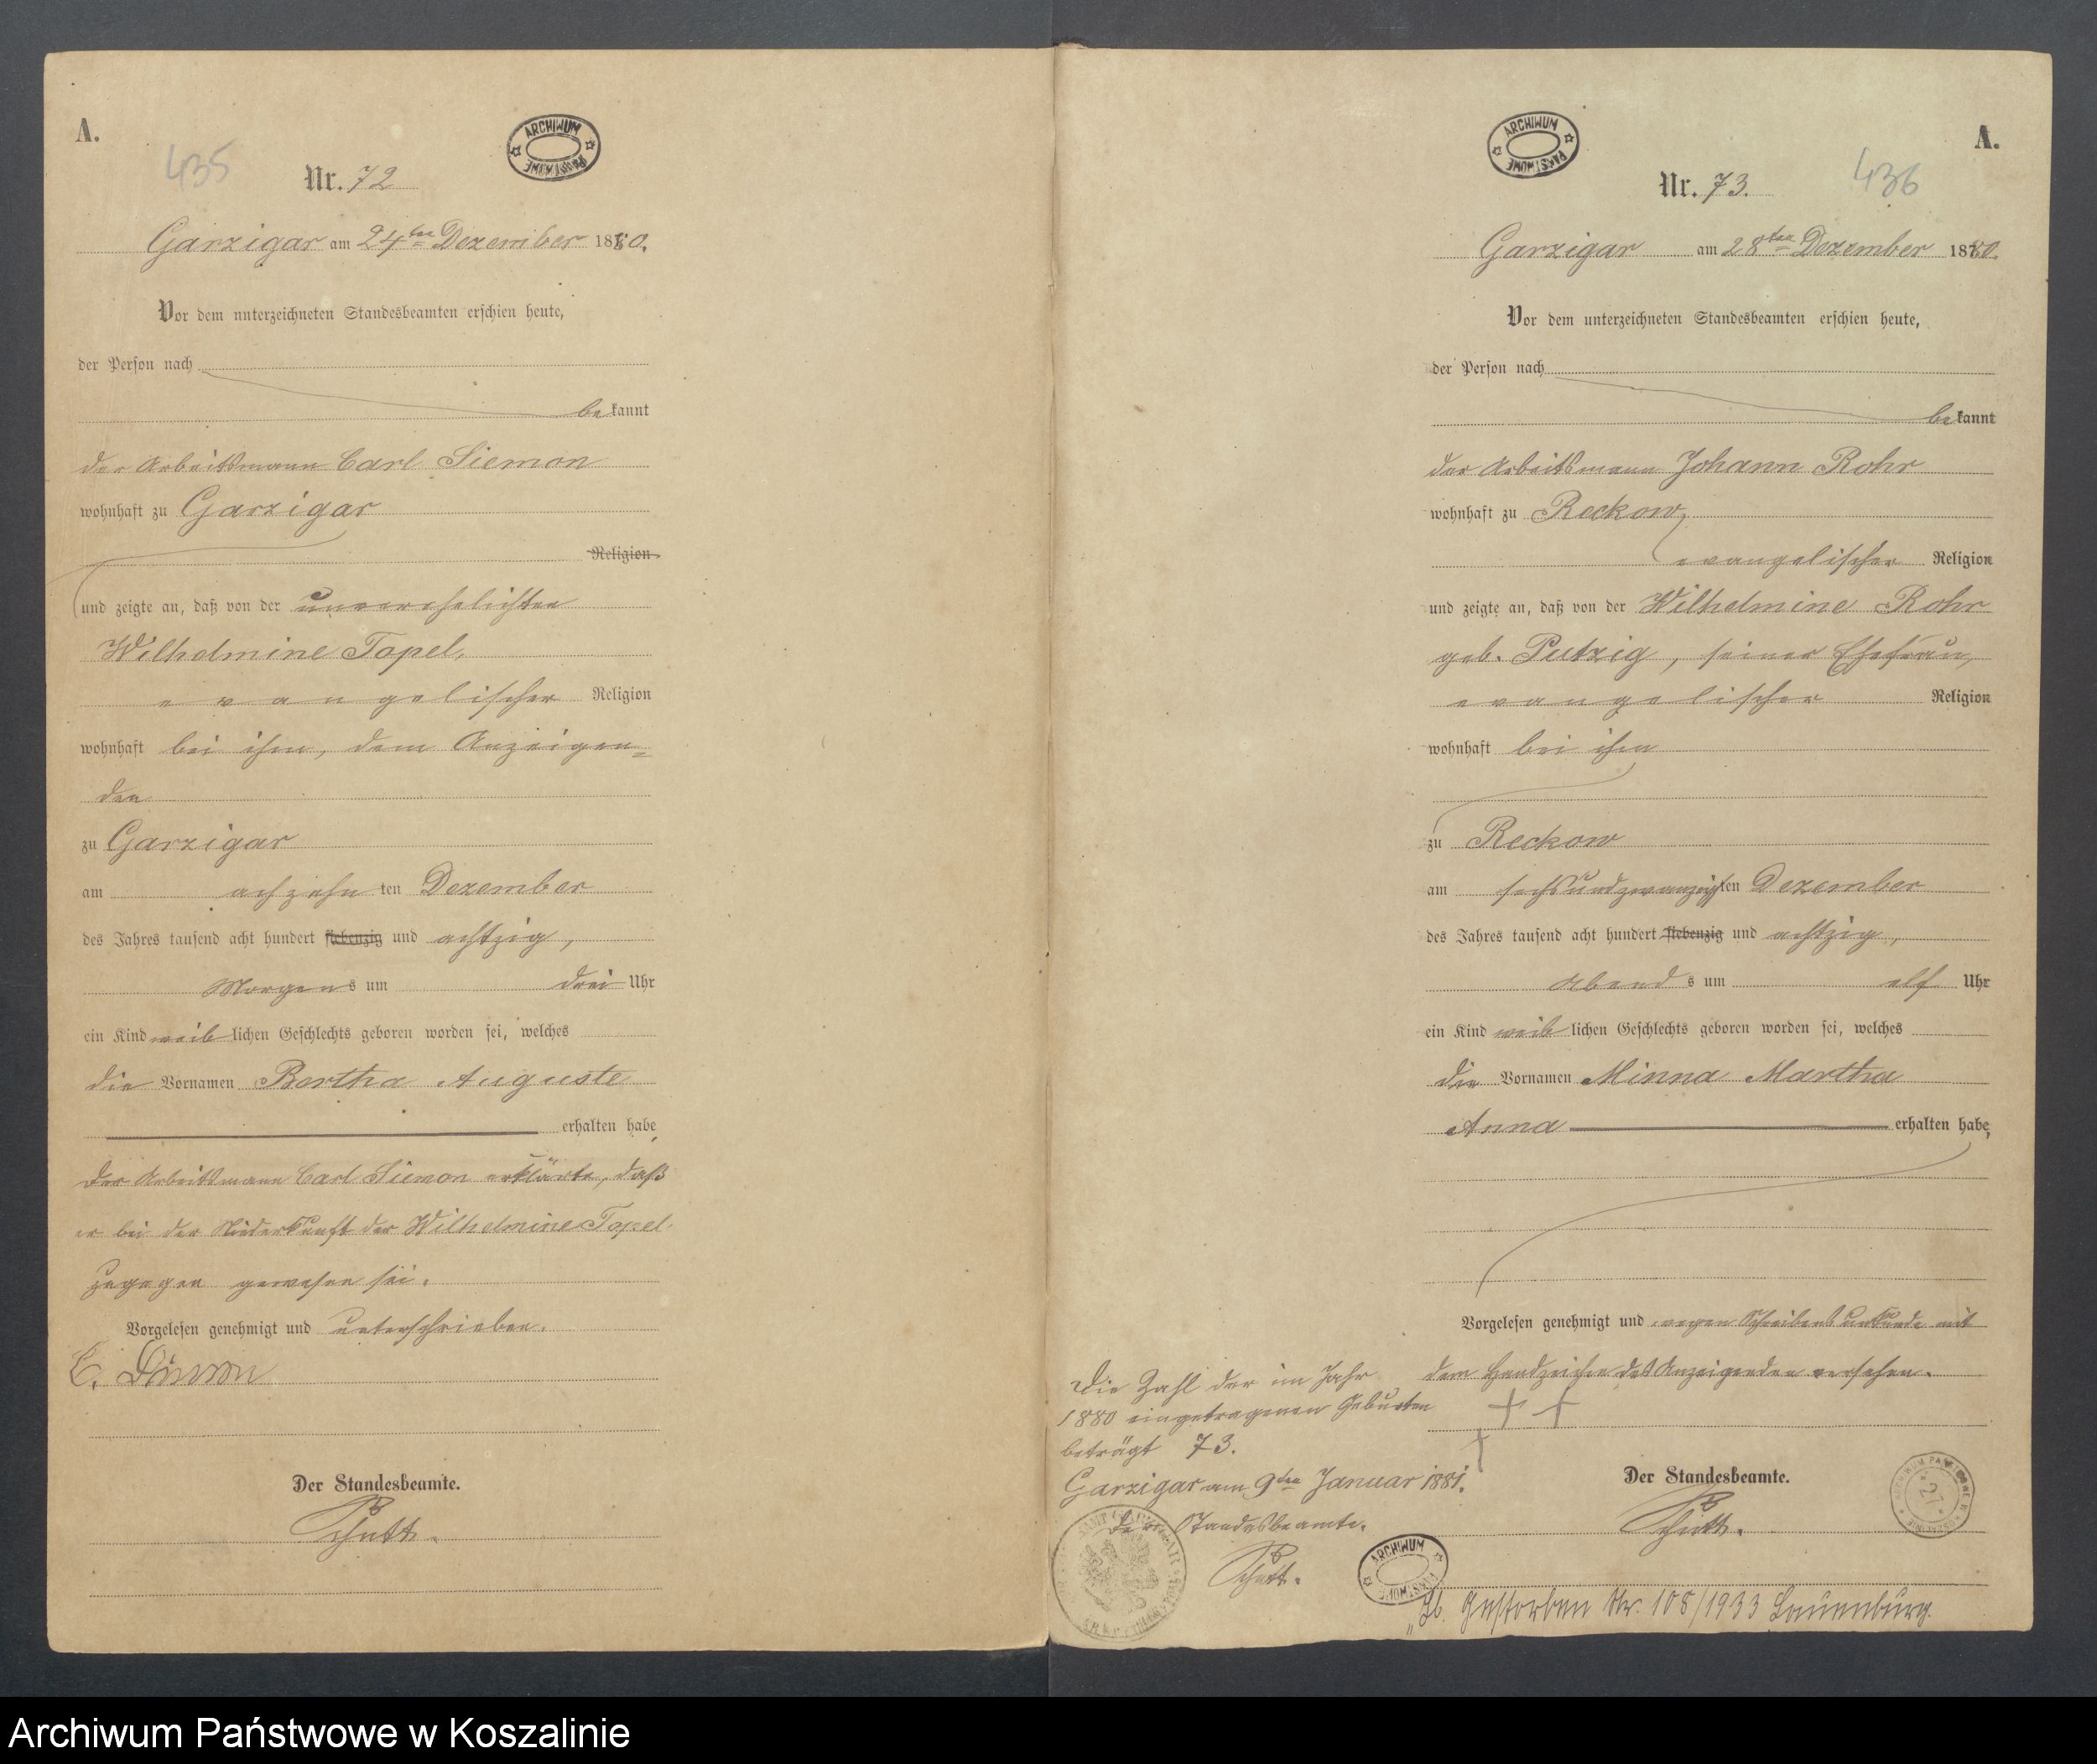 A.
435
ARCHIWUM PAŃSTWOWE
Nr. 72
Garzigar am 24ten Dezember 1880.
Vor dem unterzeichneten Standesbeamten erschien heute,
der Person nach
bekannt
der Arbeitsmann Carl Siemon
wohnhaft zu Garzigar
Religion
und zeigte an, daß von der unverehelichten
Wilhelmine Topel,
evangelischer Religion
wohnhaft bei ihm, dem Anzeigen=
den
zu Garzigar
am achzehn ten Dezember
des Jahres tausend acht hundert siebenzig und achtzig,
Morgens um drei Uhr
ein Kind weib lichen Geschlechts geboren worden sei, welches
die Vornamen Bertha Auguste
erhalten habe,
Der Arbeitsmann Carl Siemon erklärte, daß
er bei der Niederkunft der Wilhelmine Topel
zugegen gewesen sei.
Vorgelesen genehmigt und unterschrieben.
C. Simon
Der Standesbeamte.
Schutt.
A.
436
ARCHIWUM PAŃSTWOWE
Nr. 73.
Garzigar am 28ten Dezember 1880.
Vor dem unterzeichneten Standesbeamten erschien heute,
der Person nach
bekannt
der Arbeitsmann Johann Rohr
wohnhaft zu Reckow,
evangelischer Religion
und zeigte an, daß von der Wilhelmine Rohr
geb. Putzig, seiner Ehefrau,
evangelischer Religion
wohnhaft bei ihm
zu Reckow
am sechsundzwanzigsten Dezember
des Jahres tausend acht hundert siebenzig und achtzig,
Abends um elf Uhr
ein Kind weib lichen Geschlechts geboren worden sei, welches
die Vornamen Minna Martha
Anna erhalten habe,
Vorgelesen genehmigt und wegen Schreibensunkunde mit
dem Handzeichen des Anzeigenden versehen.
+ + +
Der Standesbeamte.
Schutt.
Die Zahl der im Jahr
1880 eingetragenen Geburten
beträgt 73.
Garzigar am 9ten Januar 1881.
Der Standesbeamte.
Schutt.
ARCHIWUM
Gestorben Nr. 108/1933 Lauenburg.
Archiwum Państwowe w Koszalinie